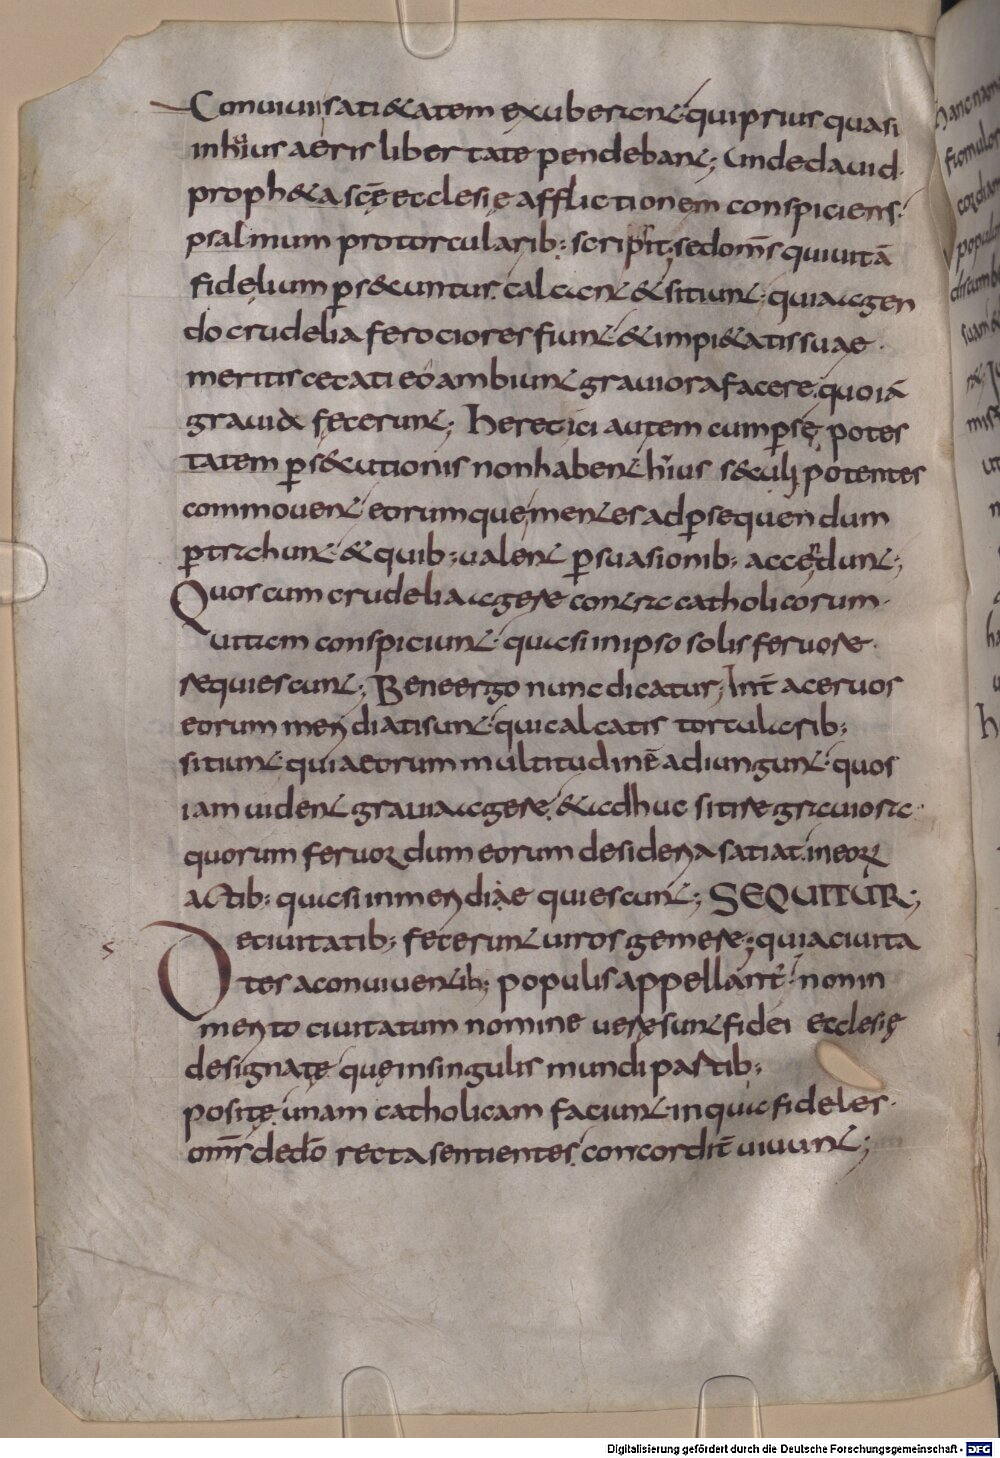 Conuiuii satietatem exuberant qui prius quasi
in huius aeris libertate pendebant; Unde dauid
propheta scę ecclesię afflictionem conspiciens
psalmum pro torcularib; scripsit sed om̄s qui uitā
fidelium ꝑsecuntur calcant & sitiunt quia agen
do crudelia ferociores fiunt & impietatis suae
meritis cecati eo ambiunt grauiora facere quo iā
grauia fecerunt; Heretici autem cum ꝑ se potes
tatem ꝑsecutionis non habent huius sęculi potentes
commouent eorumque mentes ad ꝑsequendum
ꝑtrahunt & quib; ualent ꝑsuasionib; accendunt;
Quos cum crudelia agere contra catholicorum
uitam conspiciunt quasi in ipso solis feruore
requiescunt; Bene ergo nunc dicatur; Int̄ aceruos
eorum meridiati sunt qui calcatis torcularib;
sitiunt quia eorum multitudinē adiungunt quos
iam uident grauia agere & adhuc sitire grauiora
quorum feruor dum eorum desideria satiat in eorum
actib; quasi in meridiae quiescunt; SEQUITUR;
De ciuitatib; fecerunt uiros gemere; quia ciuita
tes a conuiuentib; populis appellant̄ non in
merito ciuitatum nomine uerę sunt fidei ecclesię
designatę quę in singulis mundi partib;
positę unam catholicam faciunt in qua fideles
om̄s de dō recta sentientes concordit̄ uiuunt;
Digitalisierung gefördert durch die Deutsche Forschungsgemeinschaft - DFG